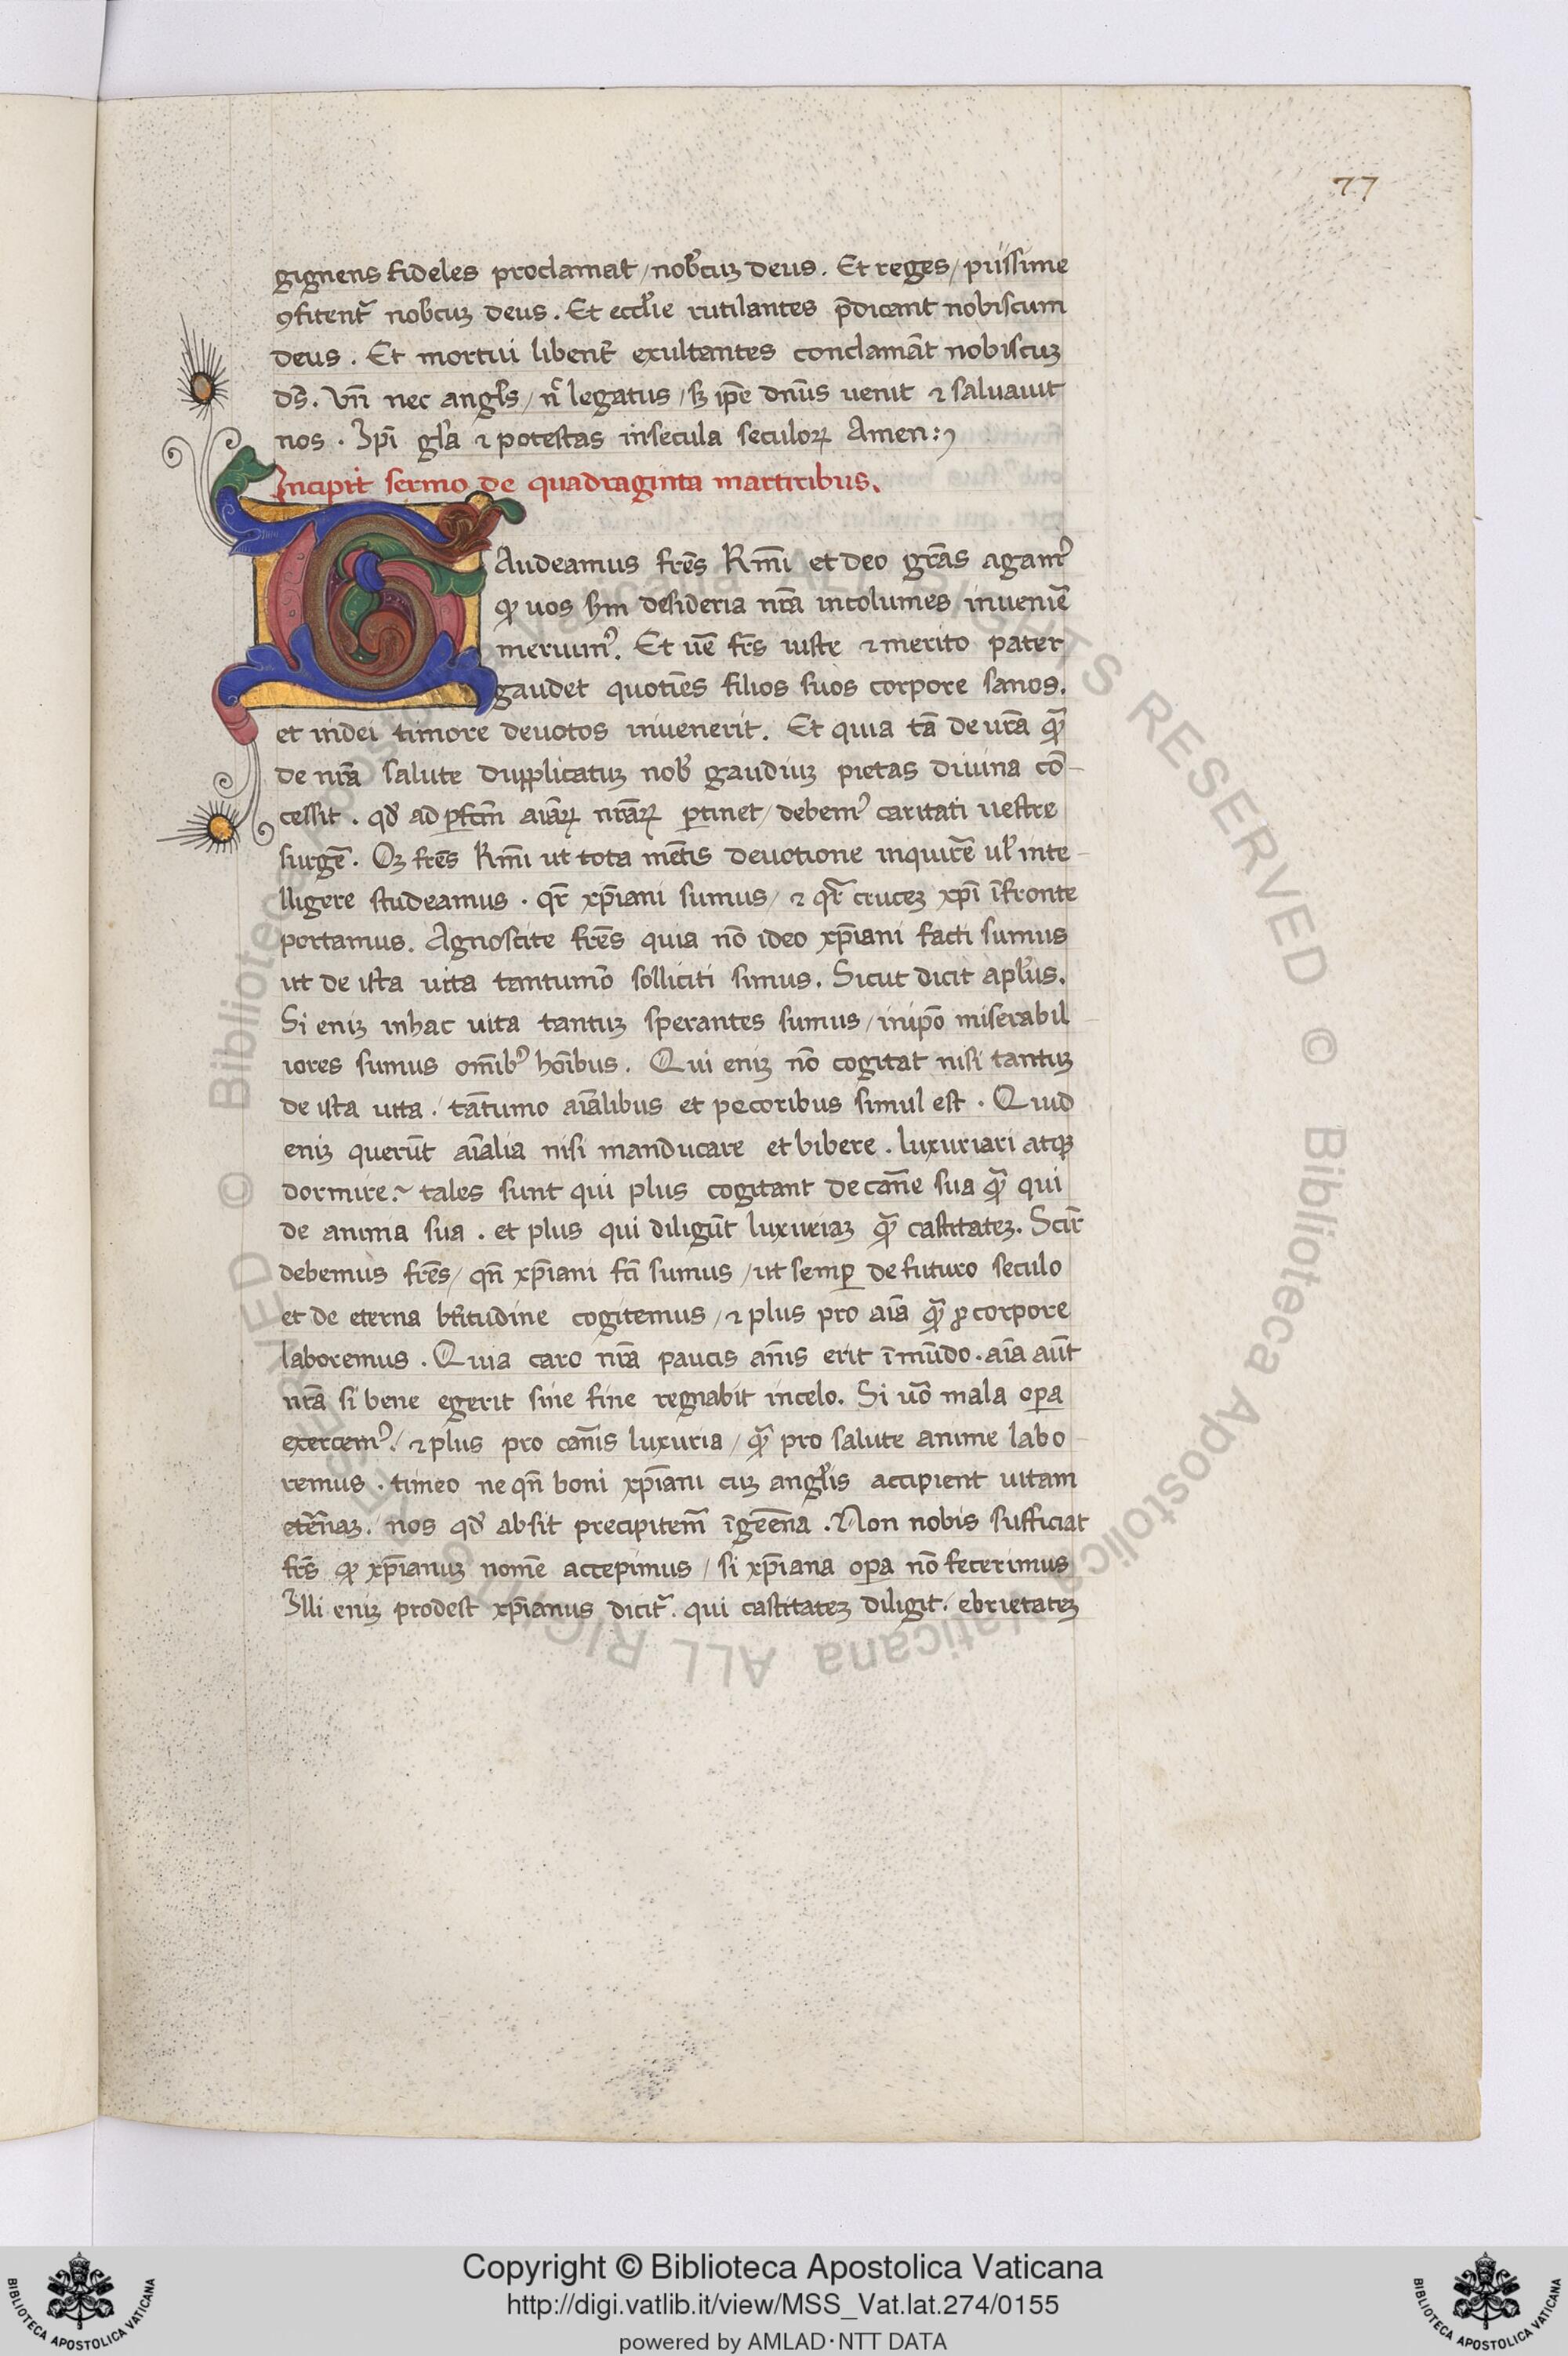 77
gignens fideles proclamat / nob̃cuꝫ deus . Et reges / piissime
ꝯfitent᷑ nob̃cuꝫ deus . Et eccl̃ie rutilantes p̃dicant nobiscum
deus . Et mortui libent᷑ exultantes conclamãt nobiscuꝫ
ds̃ . Vñ nec angl̃s / nͥ legatus / sꝫ ip̃e dn̄us uenit ⁊ saluauit
nos . Ip̃i gl̃a ⁊ potestas insecula seculoꝝ Amen :
Incipit sermo de quadraginta martiribus .
GAudeamus fr̃es Kr̃mi et deo gr̃as agamꝰ
ꝙ uos scḋm desideria nr̃a incolumes inuenir̃e
meruimꝰ . Et uer̃e fr̃s iuste ⁊ merito pater
gaudet quotiẽs filios suos corpore sanos .
et indei timore deuotos inuenerit . Et quia tã de ur̃a ꝙ̃
de nr̃a salute dupplicatuꝫ nob̃ gaudiuꝫ pietas diuina cõ
cessit . qḋ ad ꝓfcm̃ aiãꝝ nr̃aꝝ ꝑtinet / debemꝰ caritati uestre
surger̃e . Oꝫ fr̃es Kr̃mi ut tota mẽtis deuotione inquirẽ ul̃ inte
lligere studeamus . qr̃ xp̃iani sumus / ⁊ qr̃ cruceꝫ xp̃i ĩfronte
portamus . Agnoscite fr̃es quia nõ ideo xp̃iani facti sumus
ut de ista uita tantumõ solliciti simus . Sicut dicit apl̃us .
Si eniꝫ inhac uita tantuꝫ sperantes sumus / inxp̃o miserabil
iores sumus om̃ibꝰ hoĩbus . Qui eniꝫ nõ cogitat nisi tantuꝫ
de ista uita . tãtumo aiãlibus et pecoribus simul est . Quid
eniꝫ querũt aĩalia nisi manducare et bibere . luxuriari atqꝫ
dormire . tales sunt qui plus cogitant de carñe sua ꝙ̃ qui
de anima sua . et plus qui diligũt luxuriaꝫ ꝙ̃ castitateꝫ . Scir̃
debemus fr̃es / qñ xp̃iani fc̃i sumus / ut semꝑ de futuro seculo
et de eterna bt̃itudine cogitemus / ⁊ plus pro aĩa ꝙ̃ ꝓ corpore
laboremus . Quia caro nr̃a paucis añis erit ĩ mũdo . aĩa aũt
nr̃a si bene egerit sine fine regnabit incelo . Si uõ mala oꝑa
exercemꝰ . / ⁊ plus pro carñis luxuria / ꝙ̃ pro salute anime labo
remus . timeo ne qñ boni xp̃iani cuꝫ angl̃is accipient uitam
etẽrnaꝫ . nos qḋ absit precipitem᷑ ĩ gẽẽna . Non nobis sufficiat
fr̃s ꝙ xp̃ianuꝫ nomẽ accepimus / si xp̃iana oꝑa nõ fecerimus
Illi eniꝫ prodest xp̃ianus dicit᷑ . qui castitateꝫ diligit . ebrietateꝫ
© Biblioteca Apostolica Vaticana ALL RIGHTS RESERVED © Biblioteca Apostolica Vaticana ALL RIGHTS RESERVED
Copyright © Biblioteca Apostolica Vaticana
http://digi.vatlib.it/view/MSS_Vat.lat.274/0155
powered by AMLAD·NTT DATA
BIBLIOTECA APOSTOLICA VATICANA
BIBLIOTECA APOSTOLICA VATICANA